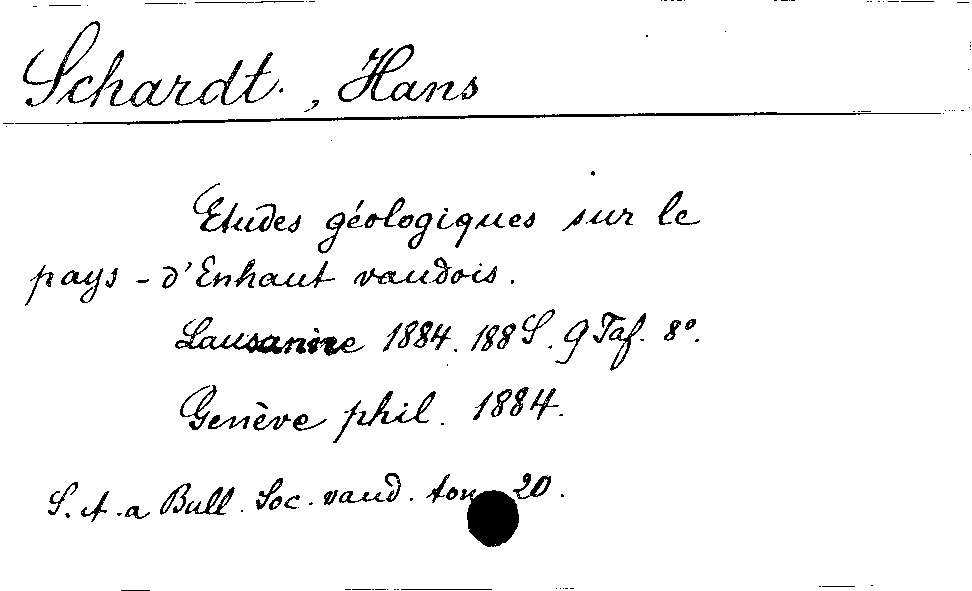 Schardt. , Hans
Etudes géologiques sur le
pays - d'Enhaut vaudois.
Lausanne 1884. 188 S. 9 Taf. 8°.
Genève phil. 1884.
S. A. a Bull. Soc. vaud. 20.